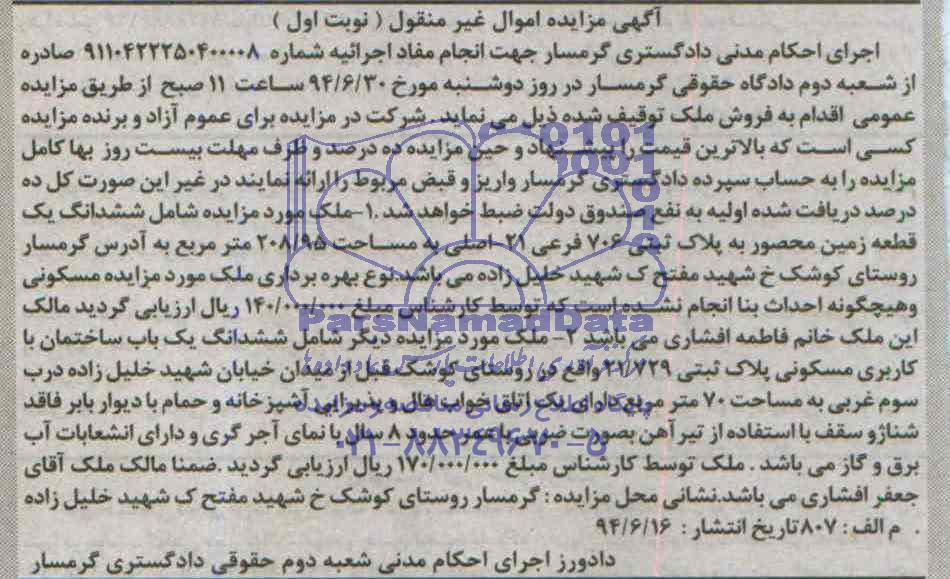 آگهی مزایده اموال غیر منقول ( نوبت اول )
اجرای احکام مدنی دادگستری گرمسار جهت انجام مفاد اجرائیه شماره ۹۱۱۰۴۲۲۲۵۰۴۰۰۰۰۸ صادره
از شعبه دوم دادگاه حقوقی گرمسار در روز دوشنبه مورخ ۹۴/۶/۳۰ ساعت ۱۱ صبح از طریق مزایده
عمومی اقدام به فروش ملک توقیف شده ذیل می نماید. شرکت در مزایده برای عموم آزاد و برنده مزایده
کسی است که بالاترین قیمت را پیشنهاد و حین مزایده ده درصد و ظرف مهلت بیست روز بها کامل
مزایده را به حساب سپرده دادگستری گرمسار واریز و قبض مربوط را ارائه نمایند در غیر این صورت کل ده
درصد دریافت شده اولیه به نفع صندوق دولت ضبط خواهد شد.۱-ملک مورد مزایده شامل ششدانگ یک
قطعه زمین محصور به پلاک ثبتی ۷۰۶ فرعی ۲۱- اصلی به مساحت ۲۰۸/۹۵ متر مربع به آدرس گرمسار
روستای کوشک خ شهید مفتح ک شهید خلیل زاده می باشد.نوع بهره برداری ملک مورد مزایده مسکونی
وهیچگونه احداث بنا انجام نشده است که توسط کارشناس مبلغ ۱۴۰/۰۰۰/۰۰۰ ریال ارزیابی گردید مالک
این ملک خانم فاطمه افشاری می باشد ۲- ملک مورد مزایده دیگر شامل ششدانگ یک باب ساختمان با
کاربری مسکونی پلاک ثبتی ۲۱/۷۲۹ واقع در روستای کوشک قبل از میدان خیابان شهید خلیل زاده درب
سوم غربی به مساحت ۷۰ متر مربع دارای یک اتاق خواب هال و پذیرایی آشپزخانه و حمام با دیوار بابر فاقد
شناژو سقف با استفاده از تیر آهن بصورت ضربی با عمر حدود ۸ سال با نمای آجر گری و دارای انشعابات آب
برق و گاز می باشد . ملک توسط کارشناس مبلغ ۱۷۰/۰۰۰/۰۰۰ ریال ارزیابی گردید .ضمنا مالک ملک آقای
جعفر افشاری می باشد.نشانی محل مزایده : گرمسار روستای کوشک خ شهید مفتح ک شهید خلیل زاده
. م الف : ۸۰۷ تاریخ انتشار : ۹۴/۶/۱۶
دادورز اجرای احکام مدنی شعبه دوم حقوقی دادگستری گرمسار
ParsNamadData
۰۲۱-۸۸۳۴۹۶۷۰-۵